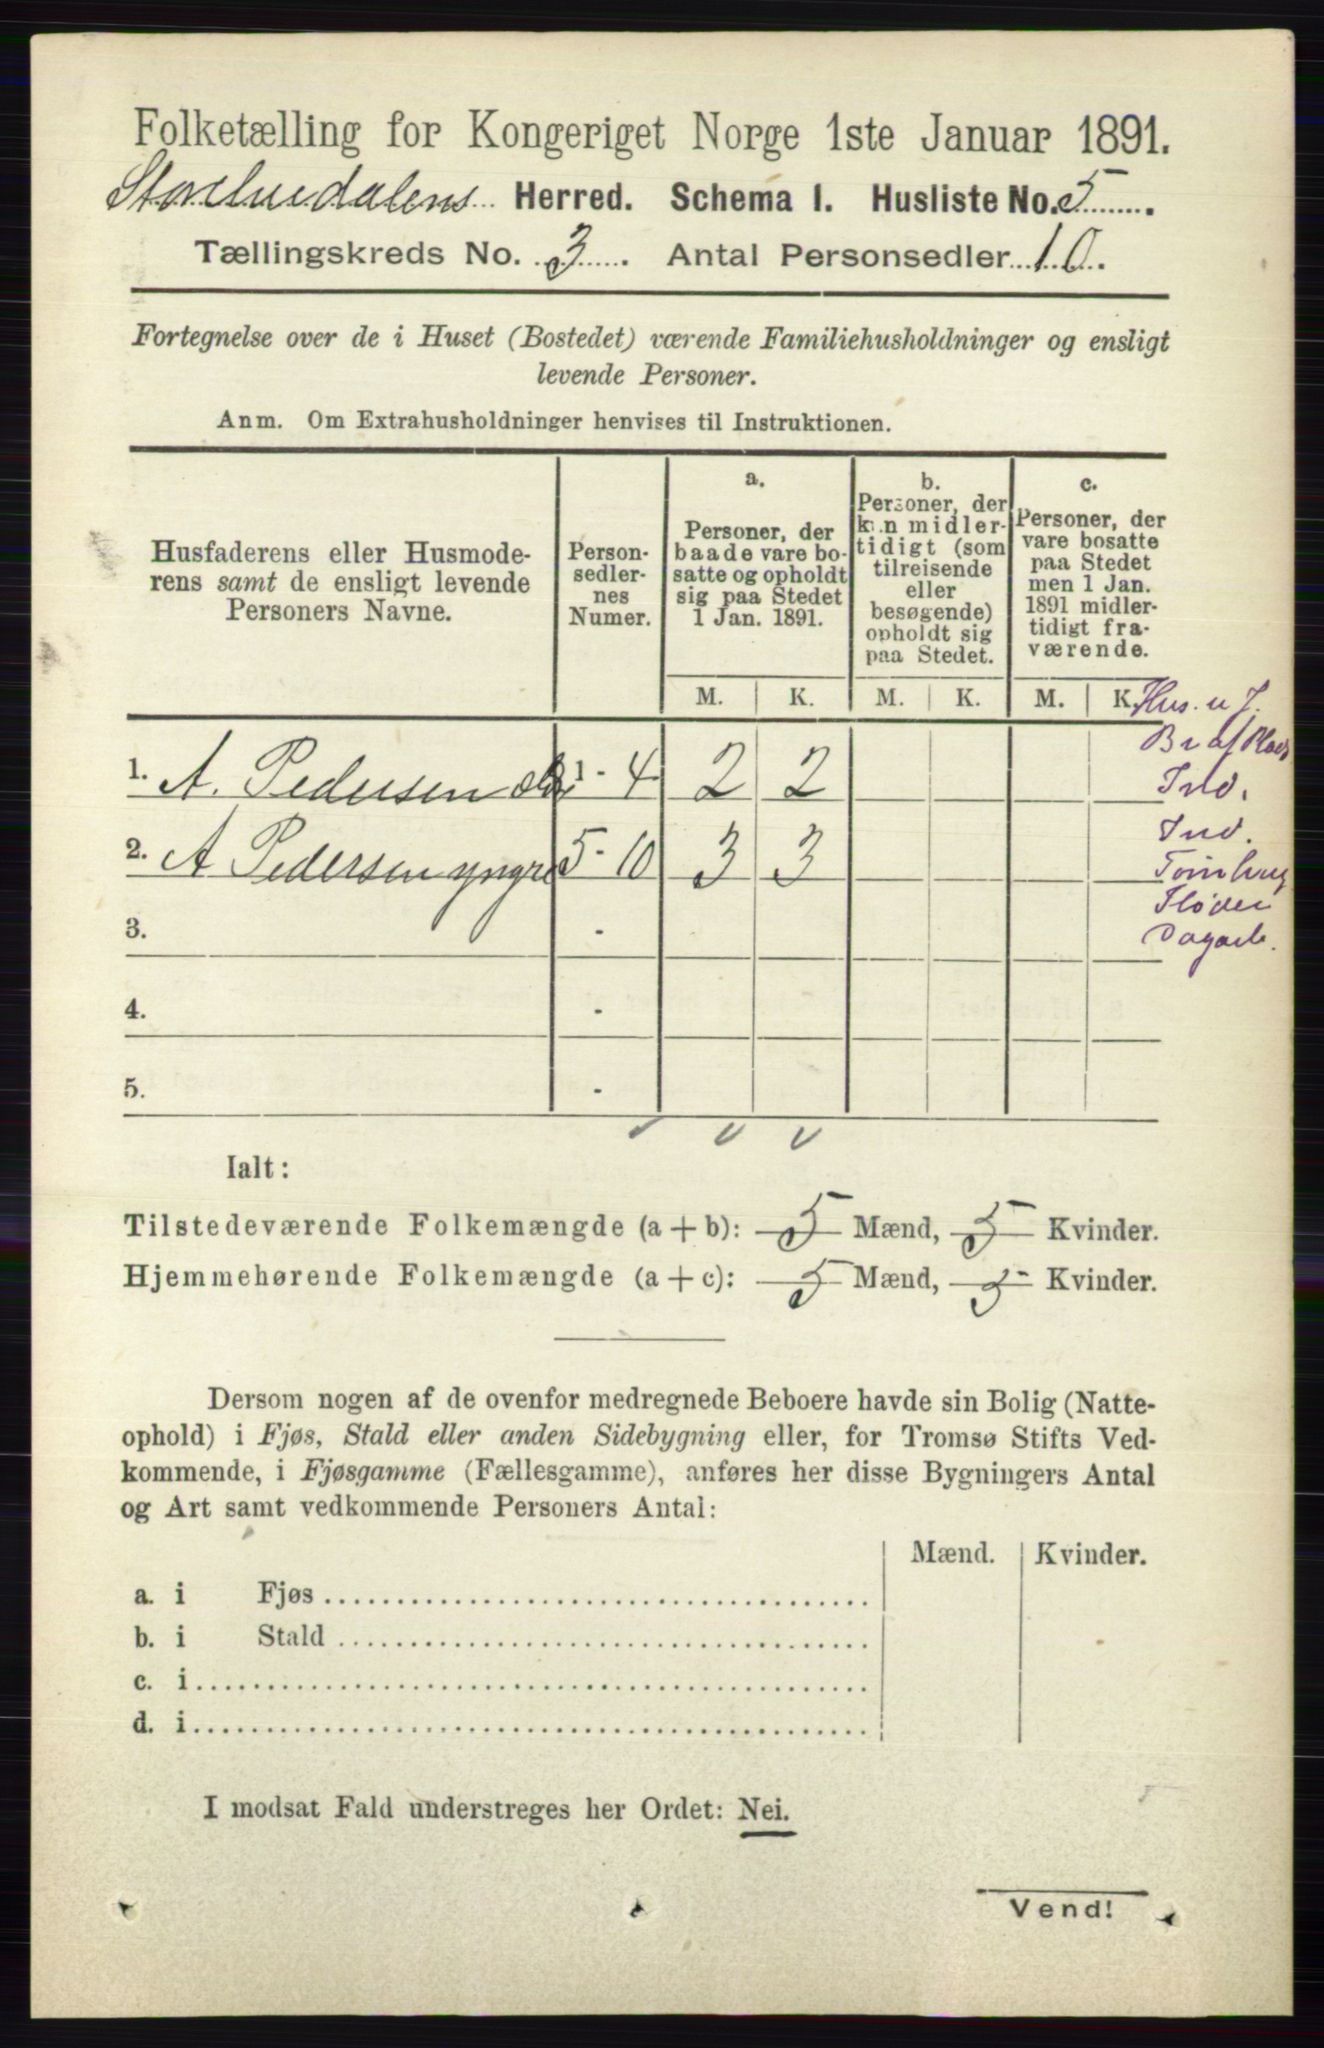 Folketælling for Kongeriget Norge 1ste Januar 1891.
Storelvedalens Herred. Schema I. Husliste No. 5
Tællingskreds No. 3. Antal Personsedler 10.
Fortegnelse over de i Huset (Bostedet) værende Familiehusholdninger og ensligt
levende Personer.
Anm. Om Extrahusholdninger henvises til Instruktionen.
Husfaderens eller Husmode-
rens samt de ensligt levende
Personers Navne.
Person-
sedler-
nes
Numer.
a.
Personer, der
baade vare bo-
satte og opholdt
sig paa Stedet
1 Jan. 1891.
b.
Personer, der
kun midler-
tidigt (som
tilreisende
eller
besøgende)
opholdt sig
paa Stedet.
c.
Personer, der
vare bosatte
paa Stedet
men 1 Jan.
1891 midler-
tidigt fra-
værende.
M. K. M. K. M. K.
Hus. u J.
Br af Plads
1. A. Pedersen 1 - 4 2 2
Ind.
Ind.
2. A Pedersen yngre 5 - 10 3 3
Tømhug
Fløder
3. -
Dagarb.
4. -
5. -
Ialt:
Tilstedeværende Folkemængde (a + b): 5 Mænd, 5 Kvinder.
Hjemmehørende Folkemængde (a + c): 5 Mænd, 5 Kvinder.
Dersom nogen af de ovenfor medregnede Beboere havde sin Bolig (Natte-
ophold) i Fjøs, Stald eller anden Sidebygning eller, for Tromsø Stifts Ved-
kommende, i Fjøsgamme (Fællesgamme), anføres her disse Bygningers Antal
og Art samt vedkommende Personers Antal:
Mænd. Kvinder.
a. i Fjøs
b. i Stald
c. i
d. i
I modsat Fald understreges her Ordet: Nei.
Vend!